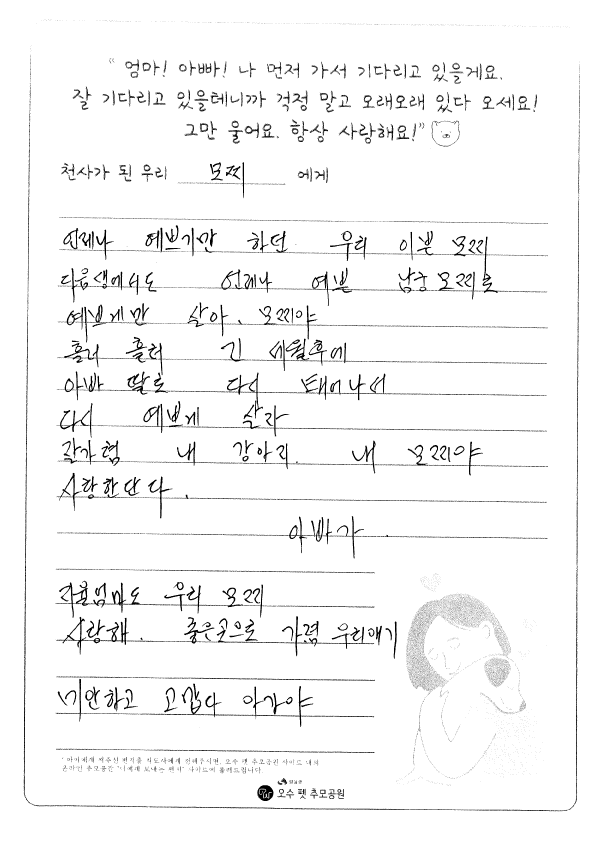 " 엄마! 아빠! 나 먼저 가서 기다리고 있을게요.
잘 기다리고 있을테니까 걱정 말고 오래오래 있다 오세요!
그만 울어요. 항상 사랑해요!"
천사가 된 우리 모찌 에게
언제나 예쁘기만 하던 우리 이쁜 모찌
다음생에서도 언제나 예쁜 모찌로
예쁘게만 살아. 모찌야
흘러 흘러 긴 세월후에
아빠 딸로 다시 태어나서
다시 예쁘게 살자
잘가렴 내 강아지. 내 모찌야
사랑한단다.
아빠가.
우리 모찌
사랑해. 좋은곳으로 가렴 우리애기
미안하고 고맙다 아가야
오수 펫 추모공원